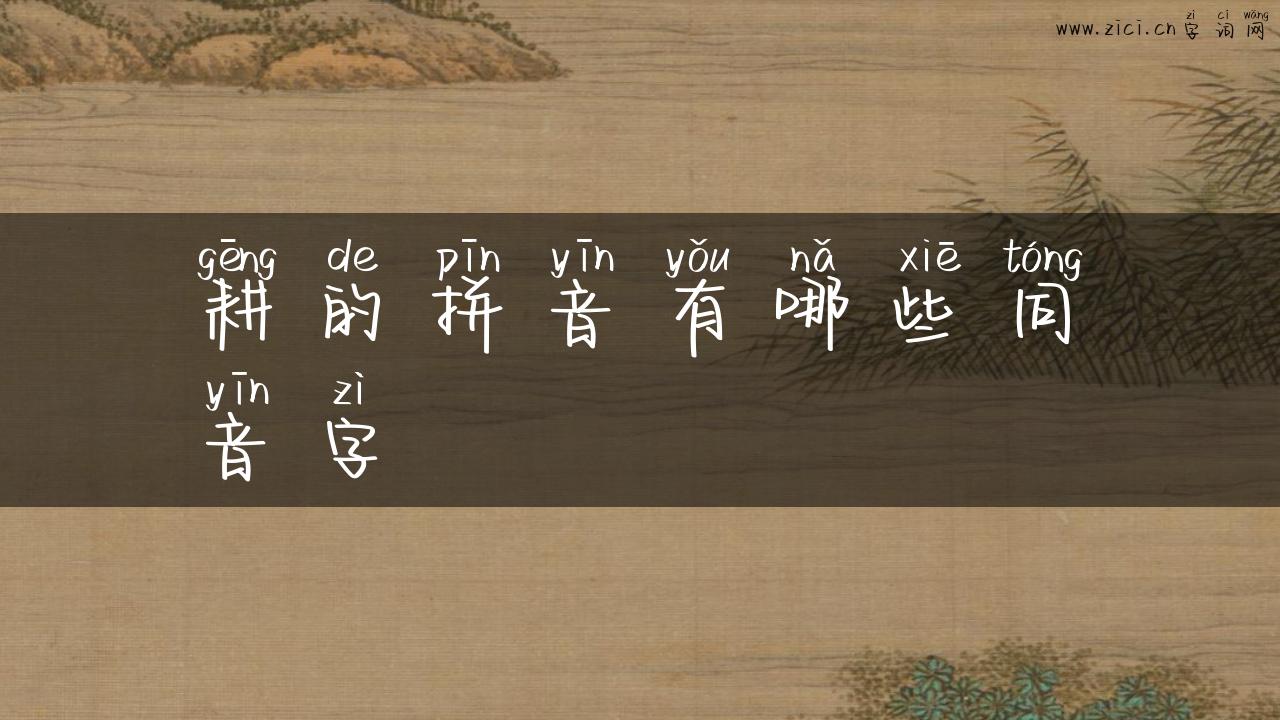 zì cí wǎng
www.zici.cn 字词网
gēng de pīn yīn yǒu nǎ xiē tóng
耕的拼音有哪些同
yīn zì
音字